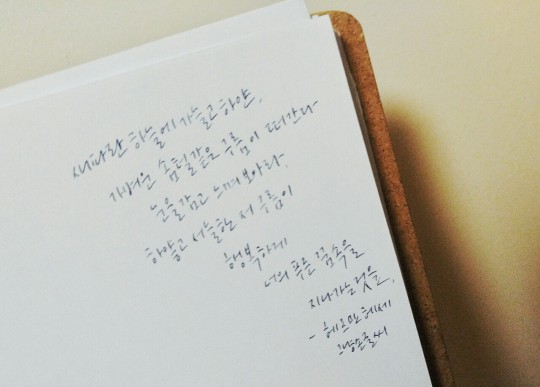 새파란 하늘에 가늘고 하얀,
가벼운 솜털같은 구름이 떠간다
눈을감고 느껴보아라
하얗고 서늘한 저 구름이
행복하게
너의 푸른 꿈속을
지나가는 것을,
- 헤르만 헤세